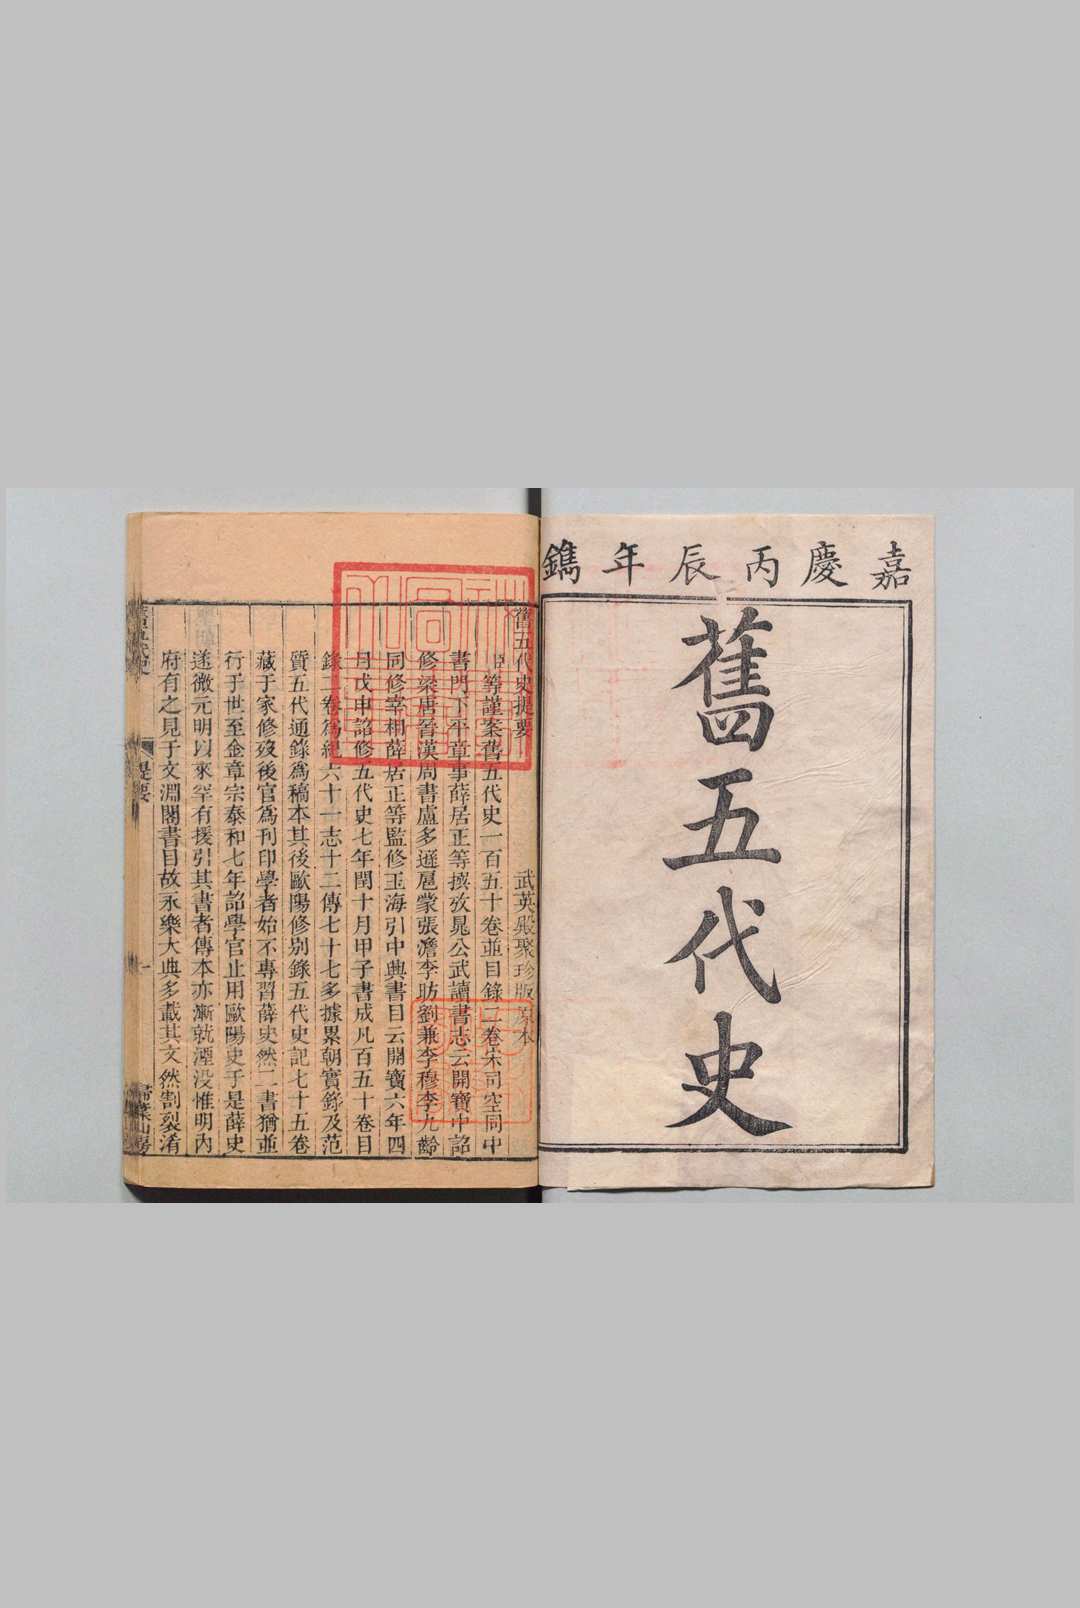 嘉慶丙辰年鐫
舊五代史
舊五代史提要
武英殿聚珍版原本
臣等謹案舊五代史一百五十卷並目錄二卷宋司空同中
書門下平章事薛居正等撰攷晁公武讀書志云開寶中詔
修梁唐晉漢周書盧多遜扈蒙張澹李昉劉兼李穆李九齡
同修宰相薛居正等監修玉海引中興書目云開寶六年四
月戊申詔修五代史七年閏十月甲子書成凡百五十卷目
錄二卷為紀六十一志十二傳七十七多據累朝實錄及范
質五代通錄為稿本其後歐陽修別錄五代史記七十五卷
藏于家修歿後官為刊印學者始不專習薛史然二書猶並
行于世至金章宗泰和七年詔學官止用歐陽史于是薛史
遂微元明以來罕有援引其書者傳本亦漸就湮没惟明内
府有之見于文淵閣書目故永樂大典多載其文然割裂淆
提要
一
掃葉山房